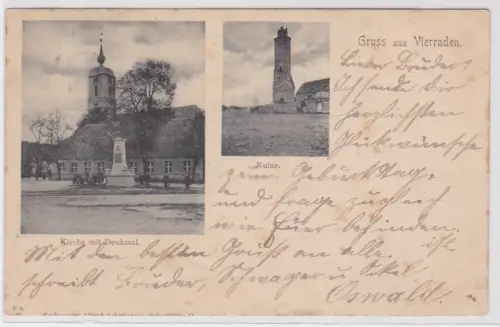 Gruss aus Vierraden.
Lieber Bruder!
Ich sende dir
herzlichsten
Glückwünsche
Ruine.
zum Geburtstag,
und frage zugleich
wie Euer befinden
ist
Kirche mit Denkmal.
Mit den besten Gruß an alle.
schreibt Bruder, Schwager u. Onkel
Oswald.